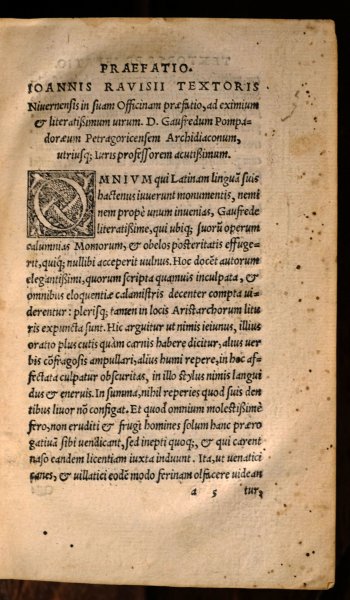 PRAEFATIO.
IOANNIS RAVISII TEXTORIS
Nivernensis in suam Officinam præfatio, ad eximium
& literatißimum uirum. D. Gaufredum Pompa-
doræum Petragoricensem Archidiaconum,
utriusq; iuris professorem acutißimum.
OMNIUM qui Latinam linguã suis
hactenus iuuerunt monumentis, nemi
nem propè unum inuenias, Gaufrede
literatißime, qui ubiq; suorũ operum
calumnias Momorum, & obelos posteritatis effuge-
rit, quiq; nullibi acceperit uulnus. Hoc docẽt autorum
elegantißimi, quorum scripta quamuis inculpata, &
omnibus eloquentiæ calamistris decenter compta ui-
derentur: plerisq; tamen in locis Aristarchorum litu
ris expuncta sunt. Hic arguitur ut nimis ieiunus, illius
oratio plus cutis quàm carnis habere dicitur, alius uer
bis cõfragosis ampullari, alius humi repere, in hoc af-
fectata culpatur obscuritas, in illo stylus nimis langui
dus & eneruis. In summa, nihil reperies quod suis den
tibus liuor nõ configat. Et quod omnium molestißimè
fero, non eruditi & frugi homines solum hanc præro
gatiuã sibi uendicant, sed inepti quoq;, & qui carent
naso eandem licentiam iuxta induunt. Ita, ut uenatici
canes, & uillatici eodẽ modo ferinam olfacere uidean
a 5 tur,